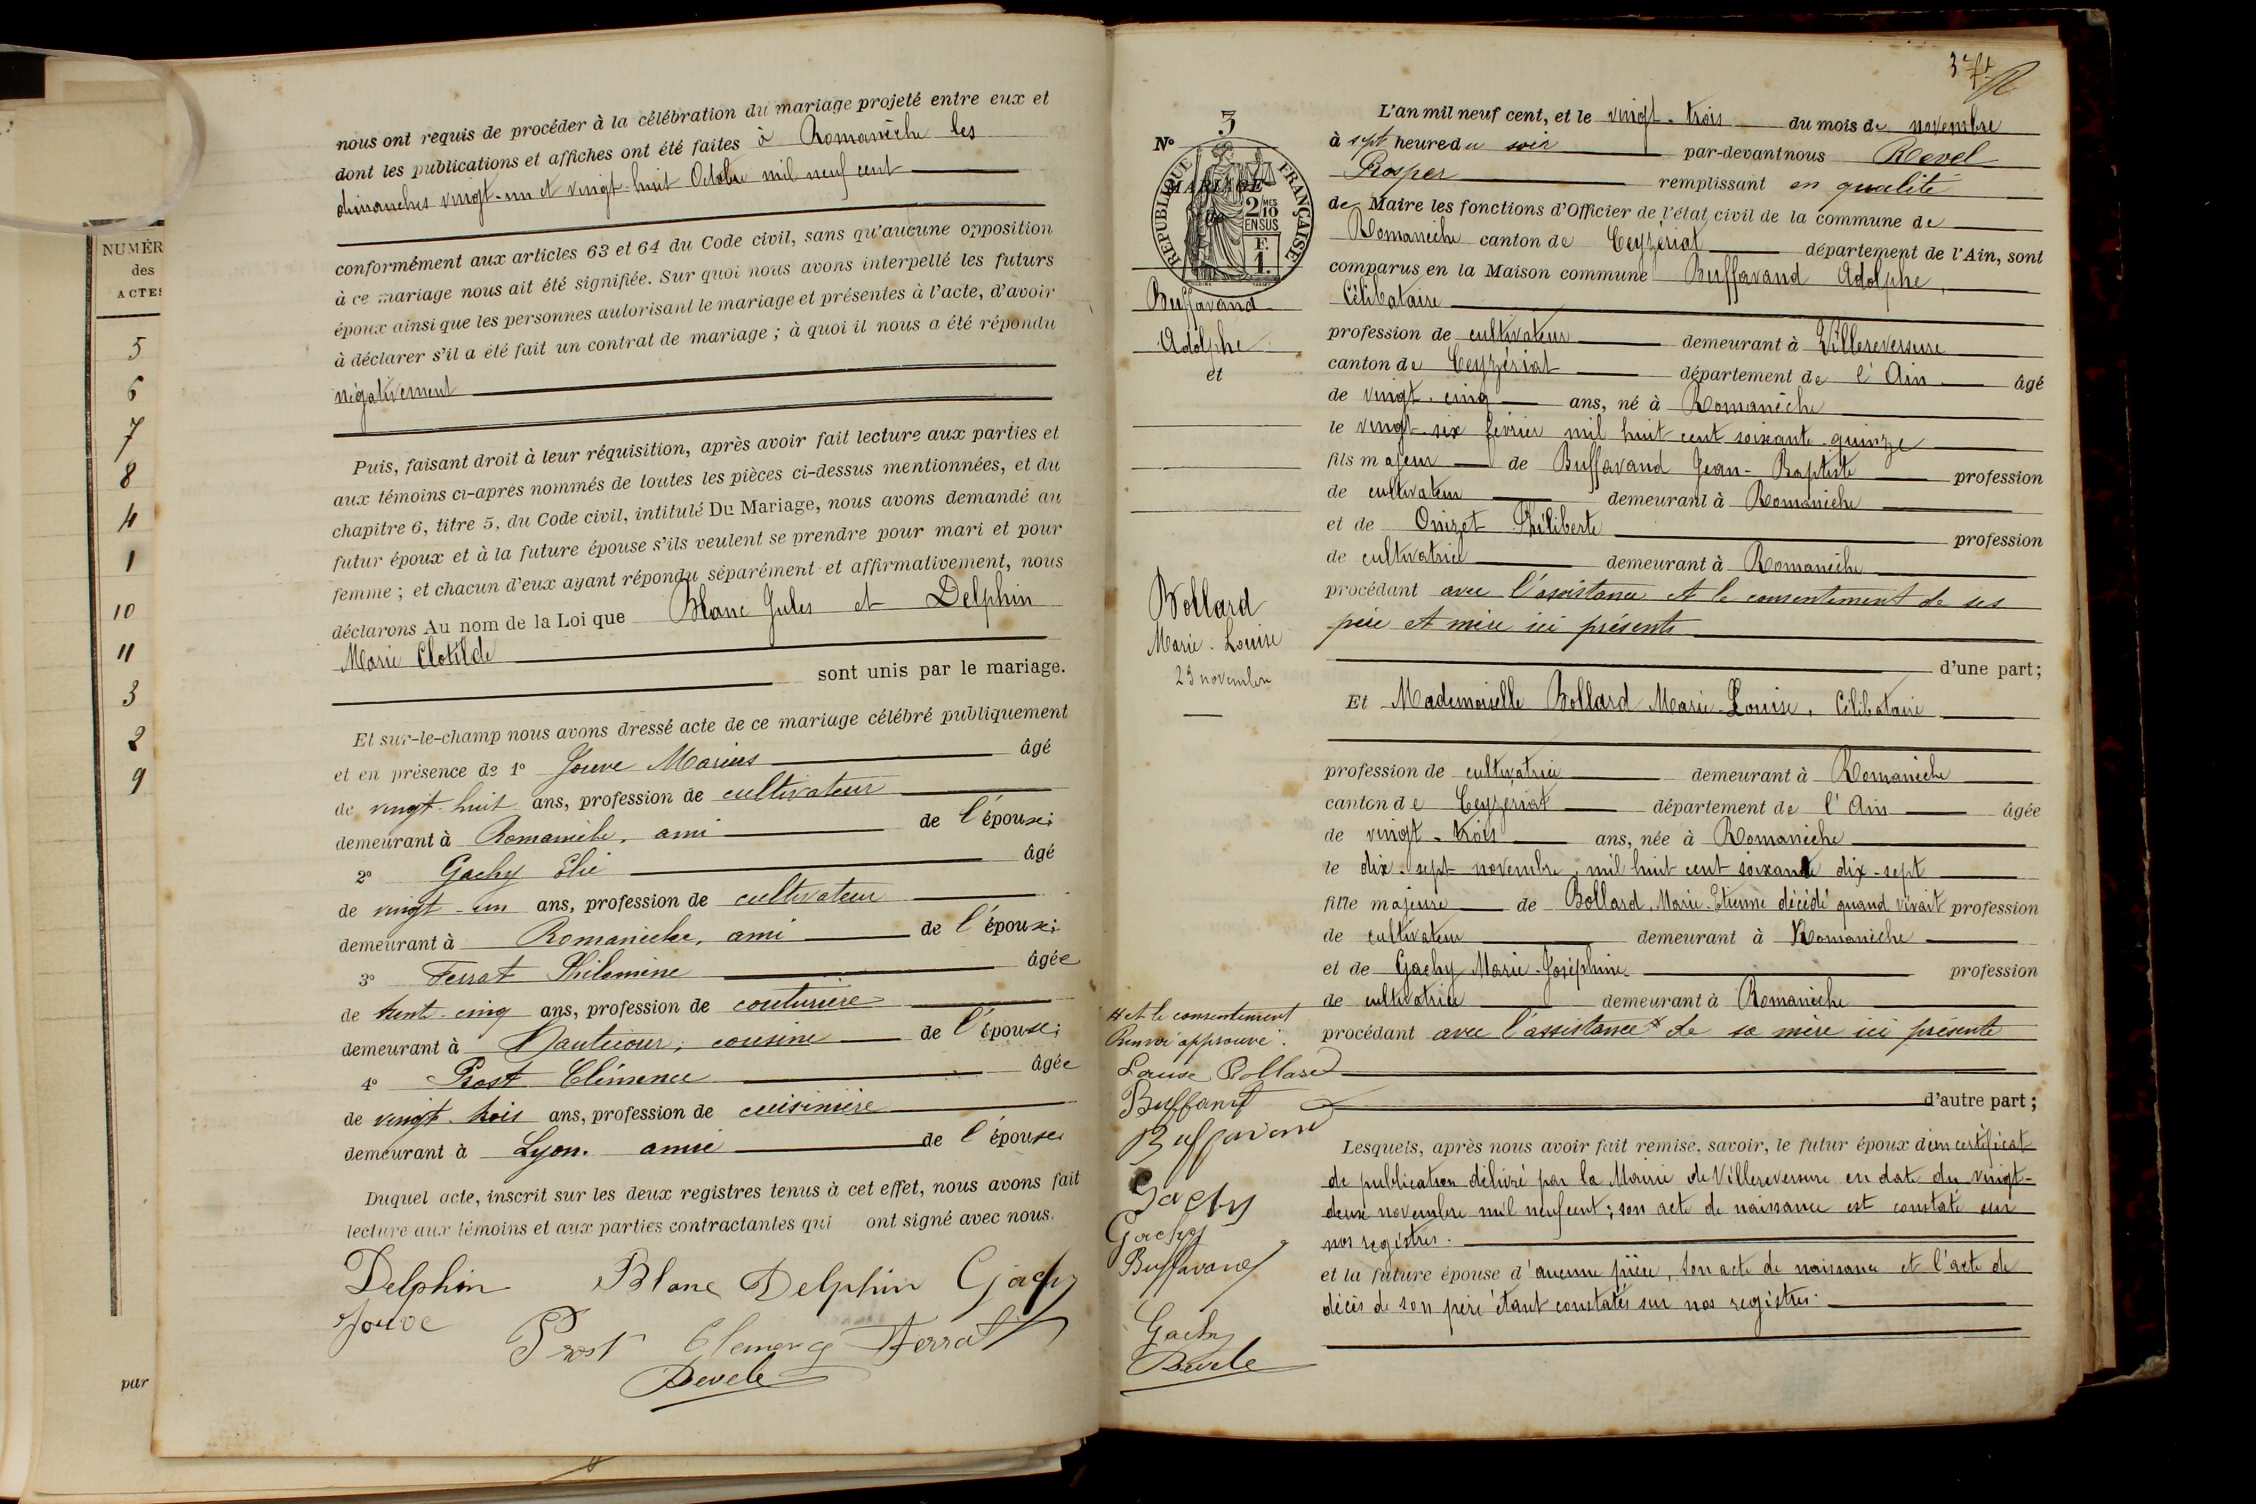 NUMÉR
des
ACTES
5
6
7
8
4
1
10
11
3
2
9
par
nous ont requis de procéder à la célébration du mariage projeté entre eux et
dont les publications et affiches ont été faites à Romanèche les
dimanches vingt-un et vingt-huit Octobre mil neuf cent
conformément aux articles 63 et 64 du Code civil, sans qu'aucune opposition
à ce mariage nous ait été signifiée. Sur quoi nous avons interpellé les futurs
époux ainsi que les personnes autorisant le mariage et présentes à l'acte, d'avoir
à déclarer s'il a été fait un contrat de mariage ; à quoi il nous a été répondu
négativement
Puis, faisant droit à leur réquisition, après avoir fait lecture aux parties et
aux témoins ci-après nommés de toutes les pièces ci-dessus mentionnées, et du
chapitre 6, titre 5, du Code civil, intitulé Du Mariage, nous avons demandé au
futur époux et à la future épouse s'ils veulent se prendre pour mari et pour
femme ; et chacun d'eux ayant répondu séparément et affirmativement, nous
déclarons Au nom de la Loi que Blanc Jules et Delphin
Marie Clotilde
sont unis par le mariage.
Et sur-le-champ nous avons dressé acte de ce mariage célébré publiquement
et en présence de 1° Jouve Marius âgé
de vingt-huit ans, profession de cultivateur
demeurant à Romanèche, ami de l'épouse;
2° Gachy Elie âgé
de vingt-un ans, profession de cultivateur
demeurant à Romanèche, ami de l'épouse;
3° Ferrat Philomène âgée
de trente-cinq ans, profession de couturière
demeurant à Hautecour, cousine de l'épouse;
4° Prost Clémence âgée
de vingt-trois ans, profession de cuisinière
demeurant à Lyon. amie de l'épouse
Duquel acte, inscrit sur les deux registres tenus à cet effet, nous avons fait
lecture aux témoins et aux parties contractantes qui ont signé avec nous.
Delphin Blanc Delphin Gachy
Jouve
Prost Clemence Ferrat
Revele
3
L'an mil neuf cent, et le vingt-trois du mois de novembre
à sept heure du soir par-devant nous Revel
Prosper remplissant en qualité
de Maire les fonctions d'Officier de l'état civil de la commune de
Romanèche canton de Ceyzériat département de l'Ain, sont
comparus en la Maison commune Buffavand Adolphe,
Célibataire
profession de cultivateur demeurant à Villereversure
canton de Ceyzériat département de l'Ain âgé
de vingt-cinq ans, né à Romanèche
le vingt-six février mil huit cent soixante-quinze
fils majeur de Buffavand Jean-Baptiste profession
de cultivateur demeurant à Romanèche
et de Onizet Philiberte profession
de cultivatrice demeurant à Romanèche
procédant avec l'assistance et le consentement de ses
père et mère ici présents
d'une part;
Et Mademoiselle Bollard Marie-Louise, Célibataire
profession de cultivatrice demeurant à Romanèche
canton de Ceyzériat département de l'Ain âgée
de vingt-trois ans, née à Romanèche
le dix-sept novembre mil huit cent soixante dix-sept
fille majeure de Bollard Marie-Etienne décédé quand vivait profession
de cultivateur demeurant à Romanèche
et de Gachy Marie-Joséphine profession
de cultivatrice demeurant à Romanèche
procédant avec l'assistance * de sa mère ici présente
d'autre part;
Lesquels, après nous avoir fait remise, savoir, le futur époux d'un certificat
de publication délivré par la Mairie de Villereversure en date du vingt-
deux novembre mil neuf cent; son acte de naissance est constaté sur
nos registres.
et la future épouse d'aucune pièce, son acte de naissance et l'acte de
décès de son père étant constatés sur nos registres.
N° 3
MARIAGE
RÉPUBLIQUE FRANÇAISE
2/10
MES
EN SUS
F.
1.
Buffavand
Adolphe
et
Bollard
Marie-Louise
23 novembre
* et le consentement
Renvoi approuvé.
Louise Bollard
Buffavand
Gachy
Gachy
Buffavand
Gachy
Revele